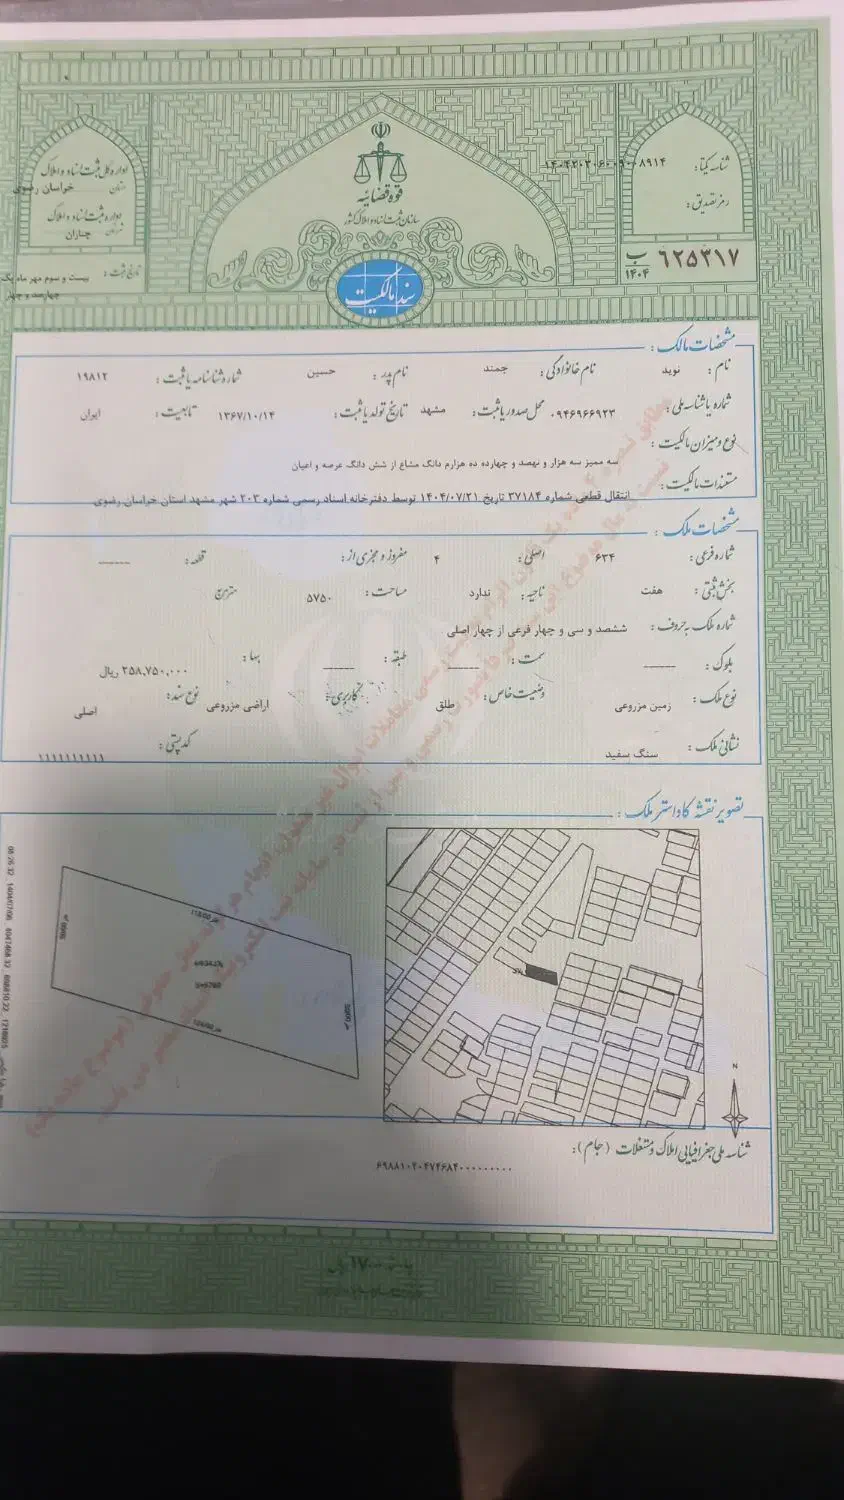 قوه قضائیه
سازمان ثبت اسناد و املاک کشور
سند مالکیت
شناسه یکتا: ۱۴۰۴۲۰۳۰۶۰۰۹۰۰۸۹۱۴
رمز تصدیق:
۶۲۵۳۱۷ ب ۱۴۰۴
اداره کل ثبت اسناد و املاک
استان خراسان رضوی
اداره ثبت اسناد و املاک
شهرستان چناران
تاریخ ثبت: بیست و سوم مهر ماه یک
چهارصد و چهار
مشخصات مالک:
نام: نوید نام خانوادگی: جمند نام پدر: حسین شماره شناسنامه یا ثبت: ۱۹۸۱۲
شماره یا شناسه ملی: ۰۹۴۶۹۶۶۹۲۳ محل صدور یا ثبت: مشهد تاریخ تولد یا ثبت: ۱۳۶۷/۱۰/۱۴ تابعیت: ایران
نوع و میزان مالکیت:
سه ممیز سه هزار و نهصد و چهارده ده هزارم دانگ مشاع از شش دانگ عرصه و اعیان
مستندات مالکیت:
انتقال قطعی شماره ۳۷۱۸۴ تاریخ ۱۴۰۴/۰۷/۲۱ توسط دفترخانه اسناد رسمی شماره ۲۰۳ شهر مشهد استان خراسان رضوی
مشخصات ملک:
شماره فرعی: ۶۳۴ اصلی: ۴ مفروز و مجزی از: قطعه: ------
بخش ثبتی: هفت ناحیه: ندارد مساحت: ۵۷۵۰ متر مربع
شماره ملک به حروف: ششصد و سی و چهار فرعی از چهار اصلی
بلوک: ------ سمت: ------ طبقه: ------ بها: ۲۵۸,۷۵۰,۰۰۰ ریال
نوع ملک: زمین مزروعی وضعیت خاص: طلق کاربری: اراضی مزروعی نوع سند: اصلی
نشانی ملک: سنگ سفید کد پستی: ۱۱۱۱۱۱۱۱۱۱
تصویر نقشه کاداستر ملک:
N
شناسه ملی جغرافیایی املاک و مستغلات (جام):
۶۹۸۸۱۰۴۰۴۷۴۶۸۴۰۰۰۰۰۰۰۰۰